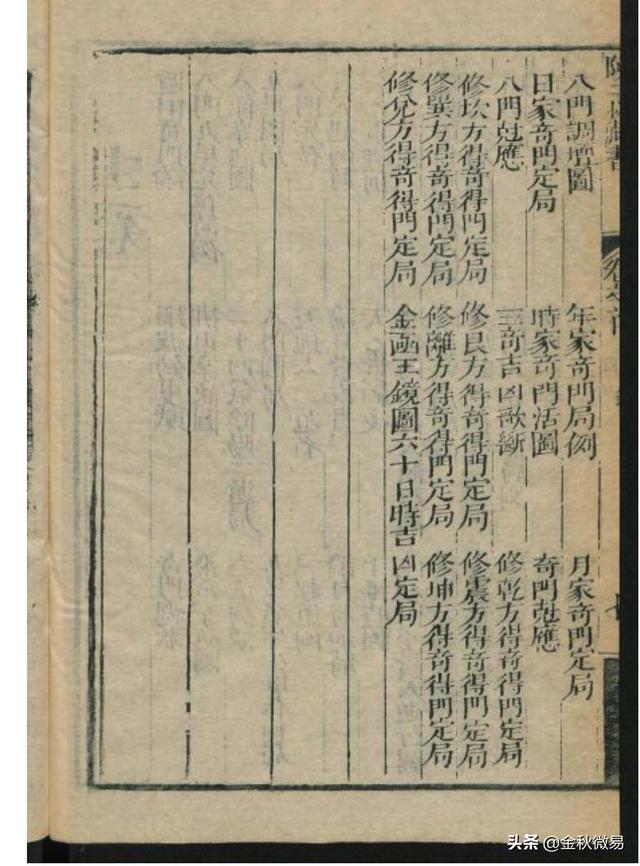 藏書
八門調壇圖 年家奇門局例 月家奇門定局
日家奇門定局 時家奇門活圖 奇門尅應
八門尅應 三奇吉凶歌斷 修乾方得奇得門定局
修坎方得奇得門定局 修艮方得奇得門定局 修震方得奇得門定局
修巽方得奇得門定局 修離方得奇得門定局 修坤方得奇得門定局
修兌方得奇得門定局 金函王鏡圖六十日時吉凶定局
头条 @金秋微易